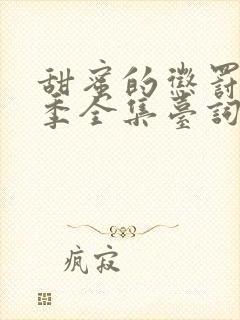 甜蜜的懲罰
季全集臺詞
疯寂